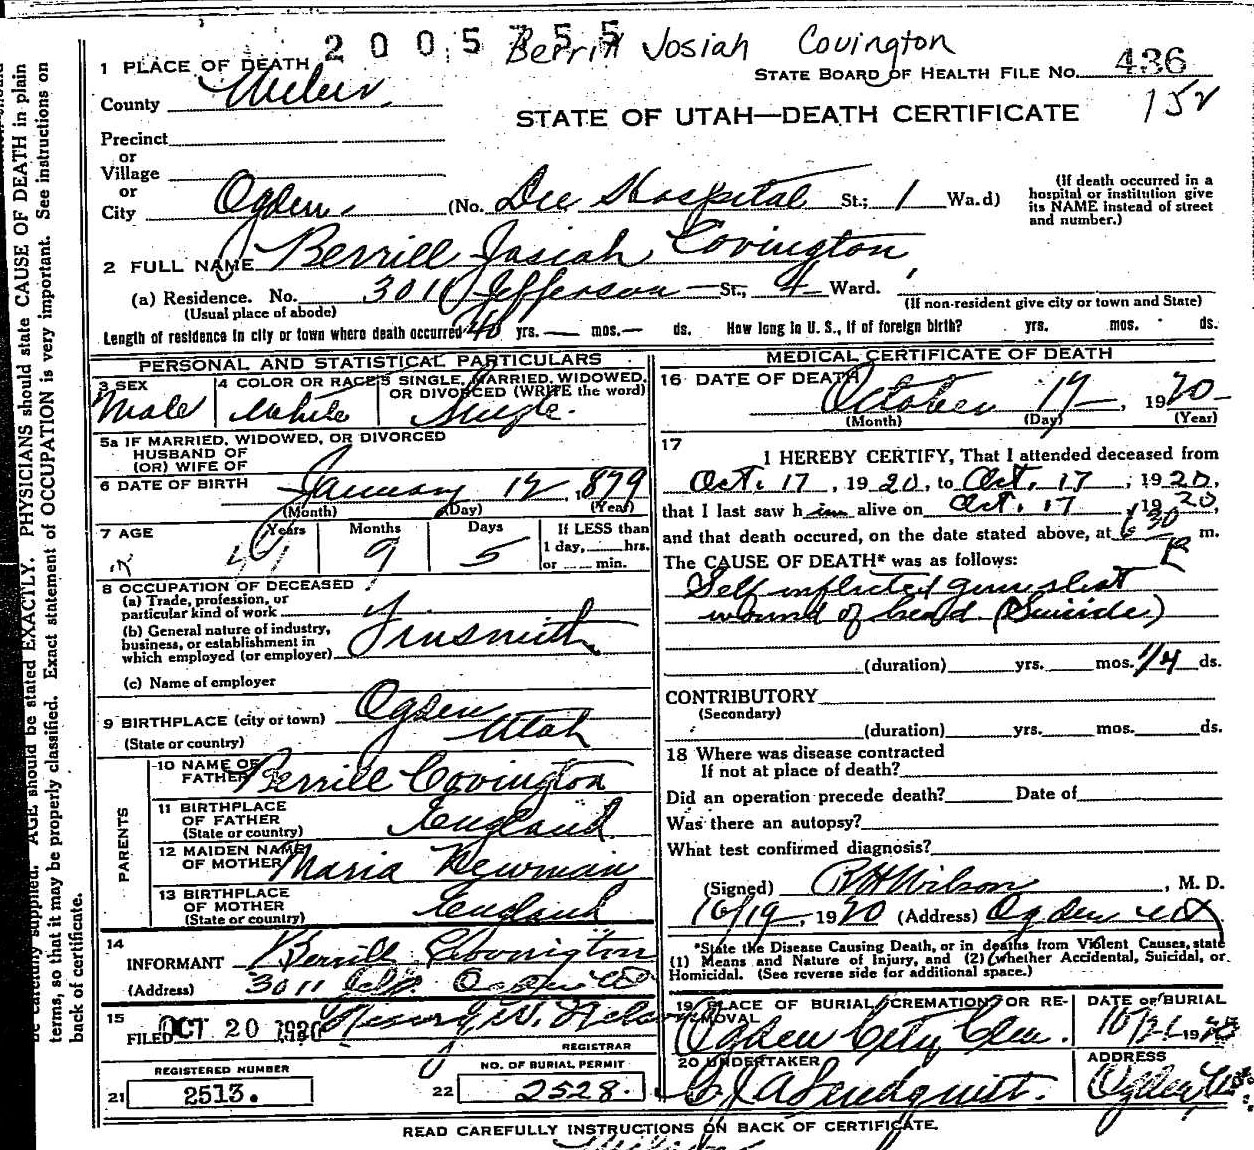 2005755 Berrill Josiah Covington
1 PLACE OF DEATH
STATE BOARD OF HEALTH FILE NO. 436
County Weber
152
STATE OF UTAH—DEATH CERTIFICATE
Precinct
or
Village
or
City Ogden. (No. Dee Hospital St.; 1 Wa.d)
(If death occurred in a hospital or institution give its NAME instead of street and number.)
2 FULL NAME Berrill Josiah Covington
(a) Residence. No. 3011 Jefferson St., 4 Ward.
(Usual place of abode) (If non-resident give city or town and State)
Length of residence in city or town where death occurred 40 yrs. — mos. — ds. How long in U. S., if of foreign birth? yrs. mos. ds.
PERSONAL AND STATISTICAL PARTICULARS
3 SEX Male
4 COLOR OR RACE White
5 SINGLE, MARRIED, WIDOWED, OR DIVORCED (WRITE the word) Single.
5a IF MARRIED, WIDOWED, OR DIVORCED
HUSBAND OF
(OR) WIFE OF
6 DATE OF BIRTH January 12, 1879
(Month) (Day) (Year)
7 AGE Years Months Days If LESS than
41 9 5 1 day, hrs.
or min.
8 OCCUPATION OF DECEASED
(a) Trade, profession, or
particular kind of work
(b) General nature of industry,
business, or establishment in
which employed (or employer) Tinsmith
(c) Name of employer
9 BIRTHPLACE (city or town) Ogden
(State or country) Utah
PARENTS
10 NAME OF FATHER Berrill Covington
11 BIRTHPLACE OF FATHER England
(State or country)
12 MAIDEN NAME OF MOTHER Maria Newman
13 BIRTHPLACE OF MOTHER England
(State or country)
14
INFORMANT Berrill Covington
(Address) 3011 Jeff. Ogden
15
FILED OCT 20 1920 Henry W.
REGISTRAR
REGISTERED NUMBER
21 2513.
NO. OF BURIAL PERMIT
22 2528.
MEDICAL CERTIFICATE OF DEATH
16 DATE OF DEATH October 17, 1920
(Month) (Day) (Year)
17
I HEREBY CERTIFY, That I attended deceased from
Oct. 17, 1920, to Oct. 17, 1920,
that I last saw him alive on Oct. 17, 1920,
and that death occured, on the date stated above, at 6:30 P m.
The CAUSE OF DEATH* was as follows:
Self inflicted gunshot
wound of head. (Suicide.)
(duration) yrs. mos. 1/4 ds.
CONTRIBUTORY
(Secondary)
(duration) yrs. mos. ds.
18 Where was disease contracted
If not at place of death?
Did an operation precede death? Date of
Was there an autopsy?
What test confirmed diagnosis?
(Signed) R H Wilson, M. D.
10/19, 1920 (Address) Ogden Ut
*State the Disease Causing Death, or in deaths from Violent Causes, state
(1) Means and Nature of Injury, and (2) whether Accidental, Suicidal, or
Homicidal. (See reverse side for additional space.)
19 PLACE OF BURIAL, CREMATION, OR REMOVAL DATE OF BURIAL
Ogden City Cem. 10/21 1920
20 UNDERTAKER ADDRESS
C. J. A. Lindquist. Ogden, Ut.
READ CAREFULLY INSTRUCTIONS ON BACK OF CERTIFICATE.
be carefully supplied. AGE should be stated EXACTLY. PHYSICIANS should state CAUSE OF DEATH in plain
terms, so that it may be properly classified. Exact statement of OCCUPATION is very important. See instructions on
back of certificate.